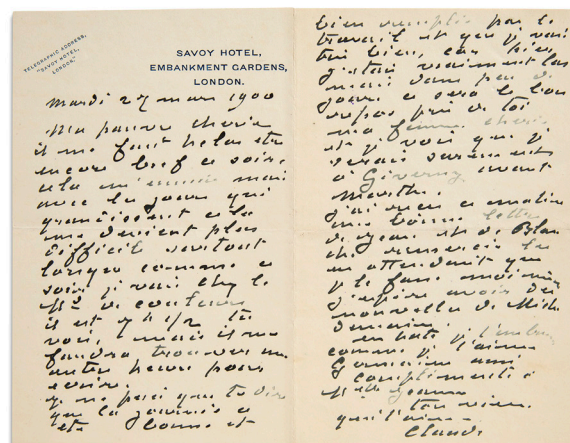 TELEGRAPHIC ADDRESS,
"SAVOY HOTEL,
LONDON."
SAVOY HOTEL,
EMBANKMENT GARDENS,
LONDON.
Mardi 27 mars 1900
Ma pauvre cherie
il me faut helas être
encore bref ce soir,
cela m'ennuie mais
avec les jours qui
grandissent cela
me devient plus
difficile surtout
lorsque comme ce
soir je vais chez le
Md de couleurs
il est 7h 1/2 tu
vois, mais il me
faudra trouver une
autre heure pour
ecrire.
je ne puis que te dire
que la journée a
été bonne et
bien remplie par le
travail et que je vais
très bien, car hier
j'étais vraiment las
mais dans peu de
jours ce sera le bon
repos près de toi
ma femme cherie
et je vois que je
serais surement
à Giverny avant
Marthe.
j'ai reçu ce matin
une bonne lettre
de Jean et de Blan
che remercie les
en attendant que
je le fasse moi-même
j'espère avoir des
nouvelles de Mich
demain
en hate je t'embrasse
comme je t'aime
Germaine aussi
compliments à
Mlle
qui t'aime.
Claude